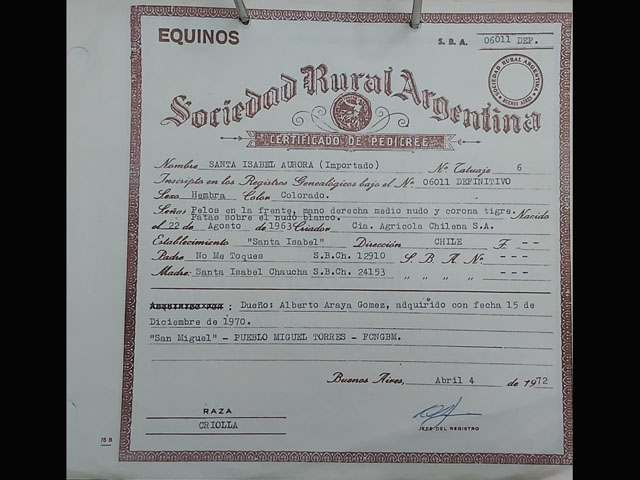 EQUINOS
S. B. A. 06011 DEF.
SOCIEDAD RURAL ARGENTINA
BUENOS AIRES
Sociedad Rural Argentina
CERTIFICADO DE PEDIGREE
Nombre SANTA ISABEL AURORA (Importado) Nº Tatuaje 6
Inscripto en los Registros Genealógicos bajo el Nº 06011 DEFINITIVO
Sexo Hembra Color Colorado.
Señas Pelos en la frente, mano derecha medio nudo y corona tigre.
Patas sobre el nudo blanco. Nacido
el 22 de Agosto de 1963 Criador Cia. Agricola Chilena S.A.
Establecimiento "Santa Isabel" Dirección CHILE F. ---
Padre No Me Toques S.B.Ch. 12910 S. B. A Nº ---
Madre: Santa Isabel Chaucha S.B.Ch. 24153 " " " " ---
: Dueño: Alberto Araya Gomez, adquirido con fecha 15 de
Diciembre de 1970.
"San Miguel" - PUEBLO MIGUEL TORRES - FCNGBM.
Buenos Aires, Abril 4 de 1972
RAZA
CRIOLLA
JEFE DEL REGISTRO